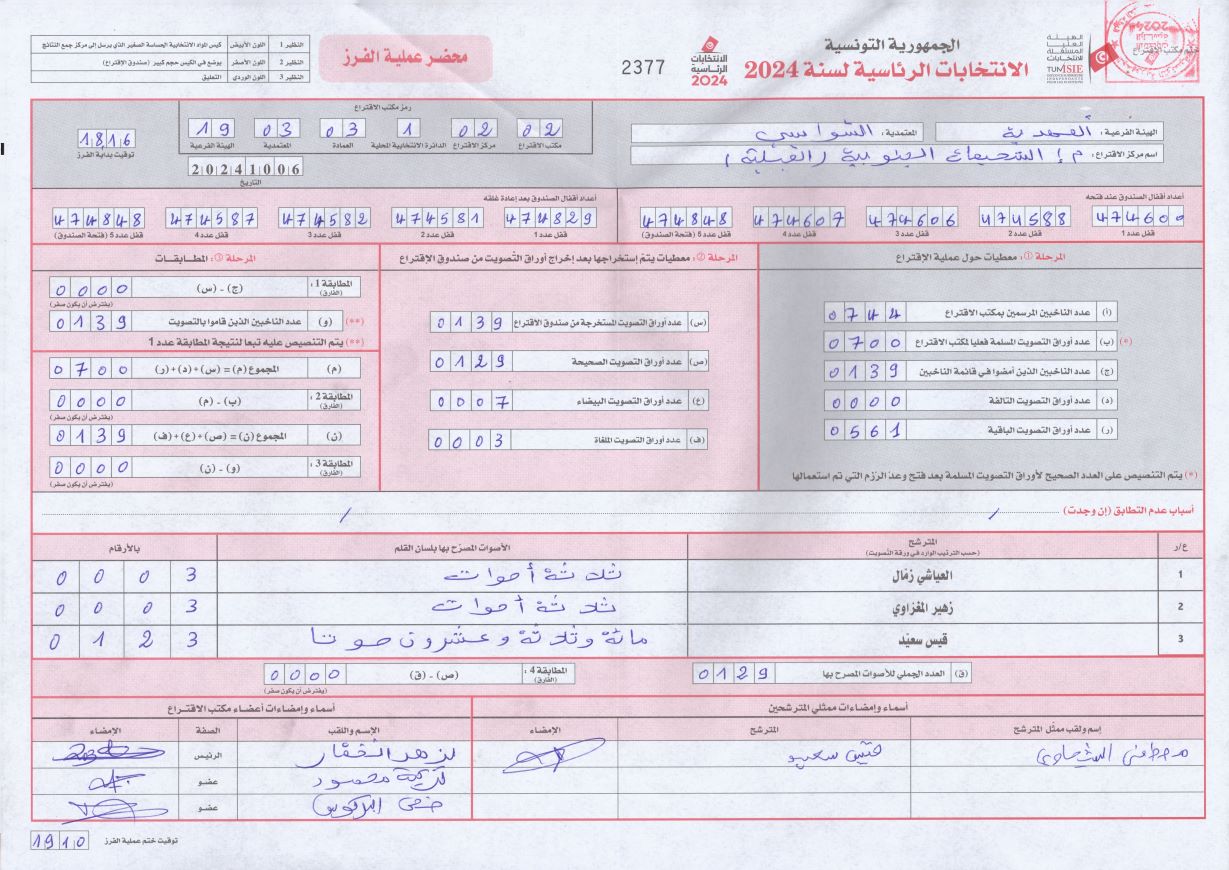 الجمهورية التونسية
الانتخابات الرئاسية لسنة 2024
الهيئة العليا المستقلة للانتخابات
الانتخابات الرئاسية 2024
2377
محضر عملية الفرز
النظير 1 اللون الأبيض كيس المواد الانتخابية الحساسة الصغير الذي يرسل إلى مركز جمع النتائج
النظير 2 اللون الأصفر يوضع في الكيس حجم كبير (صندوق الإقتراع)
النظير 3 اللون الوردي التعليق
الهيئة الفرعية : المهدية المعتمدية : الشواشي
اسم مركز الاقتراع :
رمز مكتب الاقتراع
02 02 1 03 03 19
مكتب الاقتراع مركز الاقتراع الدائرة الانتخابية المحلية العمادة المعتمدية الهيئة الفرعية
20241006
التاريخ
1816
توقيت بداية الفرز
أعداد أقفال الصندوق عند فتحه
474600 474588 474606 474607 474848
قفل عدد 1 قفل عدد 2 قفل عدد 3 قفل عدد 4 قفل عدد 5 (فتحة الصندوق)
أعداد أقفال الصندوق بعد إعادة غلقه
474829 474581 474582 474587 474848
قفل عدد 1 قفل عدد 2 قفل عدد 3 قفل عدد 4 قفل عدد 5 (فتحة الصندوق)
المرحلة ①: معطيات حول عملية الاقتراع
(أ) عدد الناخبين المرسمين بمكتب الاقتراع 0744
(*) (ب) عدد أوراق التصويت المسلمة فعليا لمكتب الاقتراع 0700
(ج) عدد الناخبين الذين أمضوا في قائمة الناخبين 0139
(د) عدد أوراق التصويت التالفة 0000
(ر) عدد أوراق التصويت الباقية 0561
(*) يتم التنصيص على العدد الصحيح لأوراق التصويت المسلمة بعد فتح وعدّ الرّزم التي تم استعمالها
المرحلة ②: معطيات يتم إستخراجها بعد إخراج أوراق التّصويت من صندوق الإقتراع
(س) عدد أوراق التصويت المستخرجة من صندوق الاقتراع 0139
(ص) عدد أوراق التصويت الصحيحة 0129
(ع) عدد أوراق التصويت البيضاء 0007
(ف) عدد أوراق التصويت الملغاة 0003
المرحلة ③: المطابقات
المطابقة 1 : (الفارق) (ج) - (س) 0000
(يفترض أن يكون صفر)
(**) (و) عدد الناخبين الذين قاموا بالتصويت 0139
(**) يتم التنصيص عليه تبعا لنتيجة المطابقة عدد 1
(م) المجموع (م) = (س) + (د) + (ر) 0700
المطابقة 2 : (الفارق) (ب) - (م) 0000
(يفترض أن يكون صفر)
(ن) المجموع (ن) = (ص) + (ع) + (ف) 0139
المطابقة 3 : (الفارق) (و) - (ن) 0000
(يفترض أن يكون صفر)
أسباب عدم التطابق (إن وجدت) / /
ع/ر المترشح الأصوات المصرّح بها بلسان القلم بالأرقام
(حسب الترتيب الوارد في ورقة التصويت)
1 العياشي زمّال ثلاثة أصوات 0003
2 زهير المغزاوي ثلاثة أصوات 0003
3 قيس سعيّد مائة وثلاثة وعشرون صوتا 0123
(ق) العدد الجملي للأصوات المصرح بها 0129
المطابقة 4 : (الفارق) (ص) - (ق) 0000
(يفترض أن يكون صفر)
أسماء وإمضاءات ممثلي المترشحين
إسم ولقب ممثل المترشح المترشح الإمضاء
مصطفى قيس سعيد
أسماء وإمضاءات أعضاء مكتب الاقتراع
الإسم واللقب الصفة الإمضاء
الرئيس
عضو
عضو
توقيت ختم عملية الفرز 1910